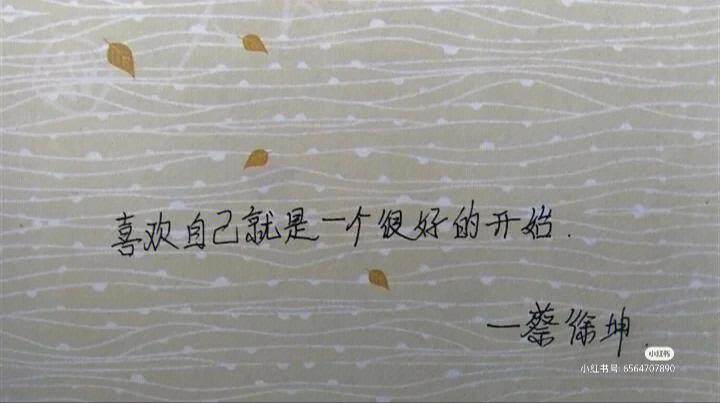 喜欢自己就是一个很好的开始.
—蔡徐坤.
小红书
小红书号: 6564707890